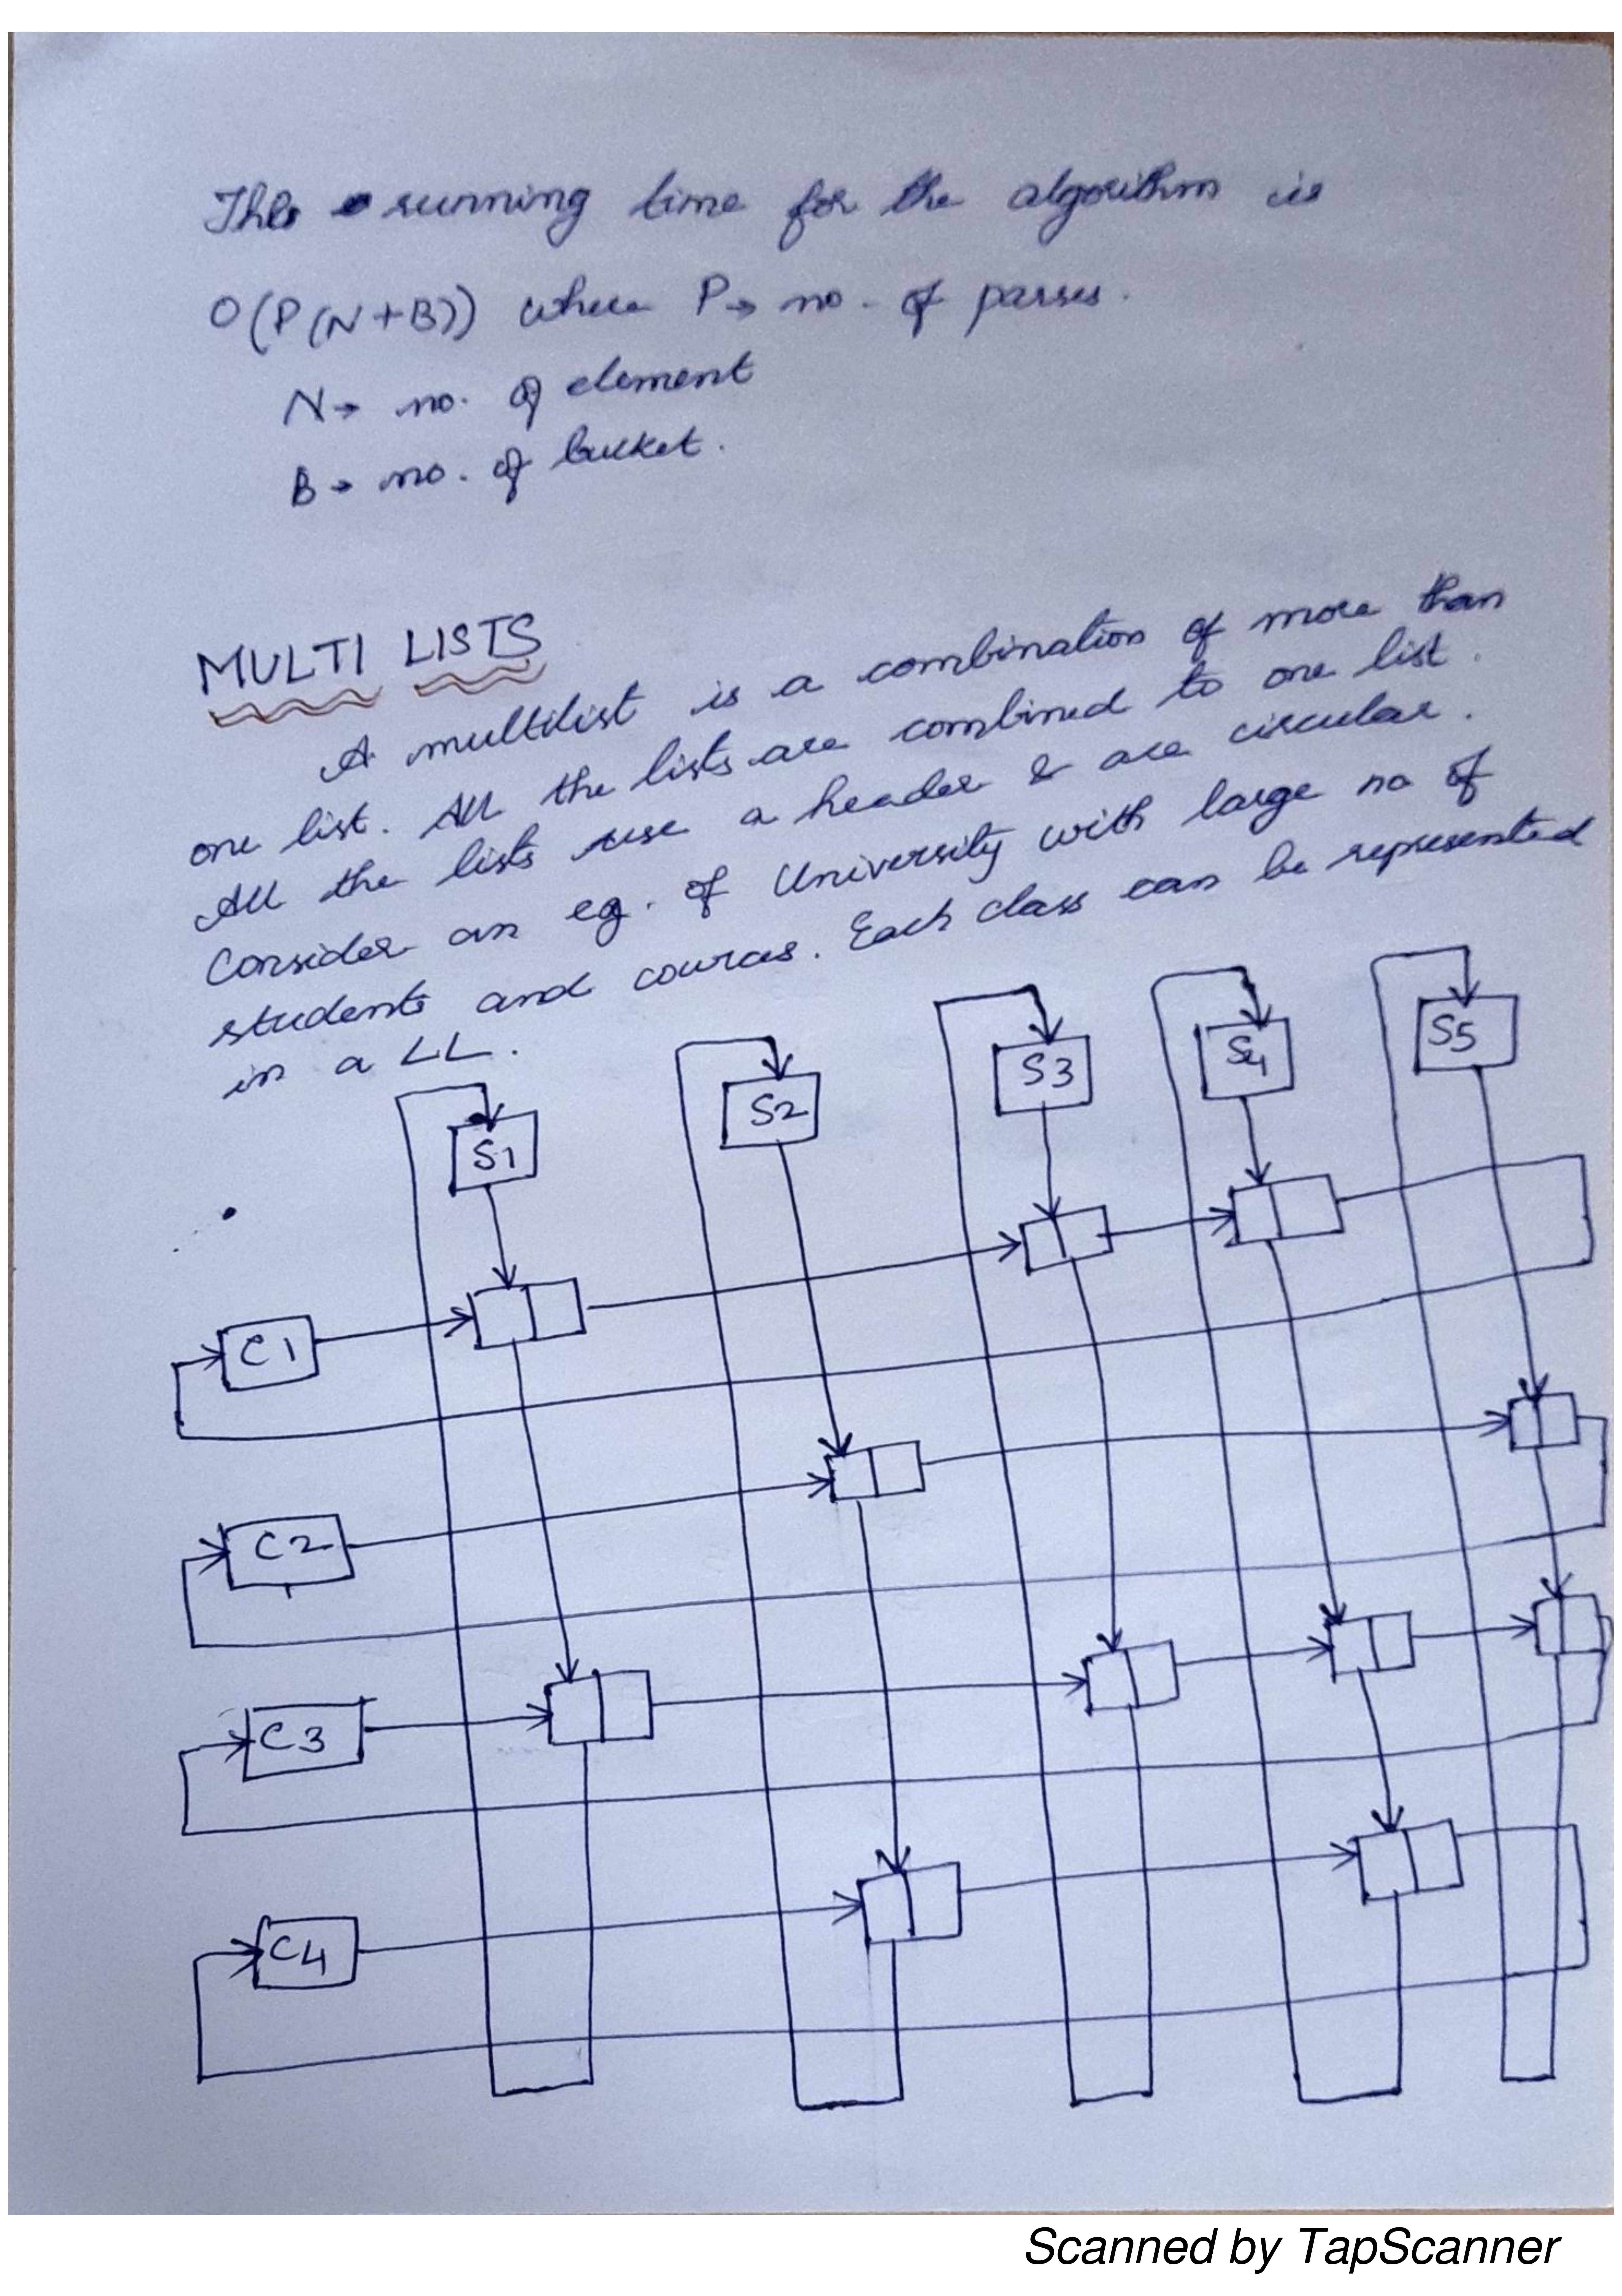 This running time for the algorithm is
O(P(N+B)) where P→ no. of passes.
N→ no. of element
B→ no. of bucket.
MULTI LISTS
A multilist is a combination of more than
one list. All the lists are combined to one list.
All the lists use a header & are circular.
Consider an eg. of University with large no of
students and cources. Each class can be represented
in a LL.
S1 S2 S3 S4 S5
C1
C2
C3
C4
Scanned by TapScanner